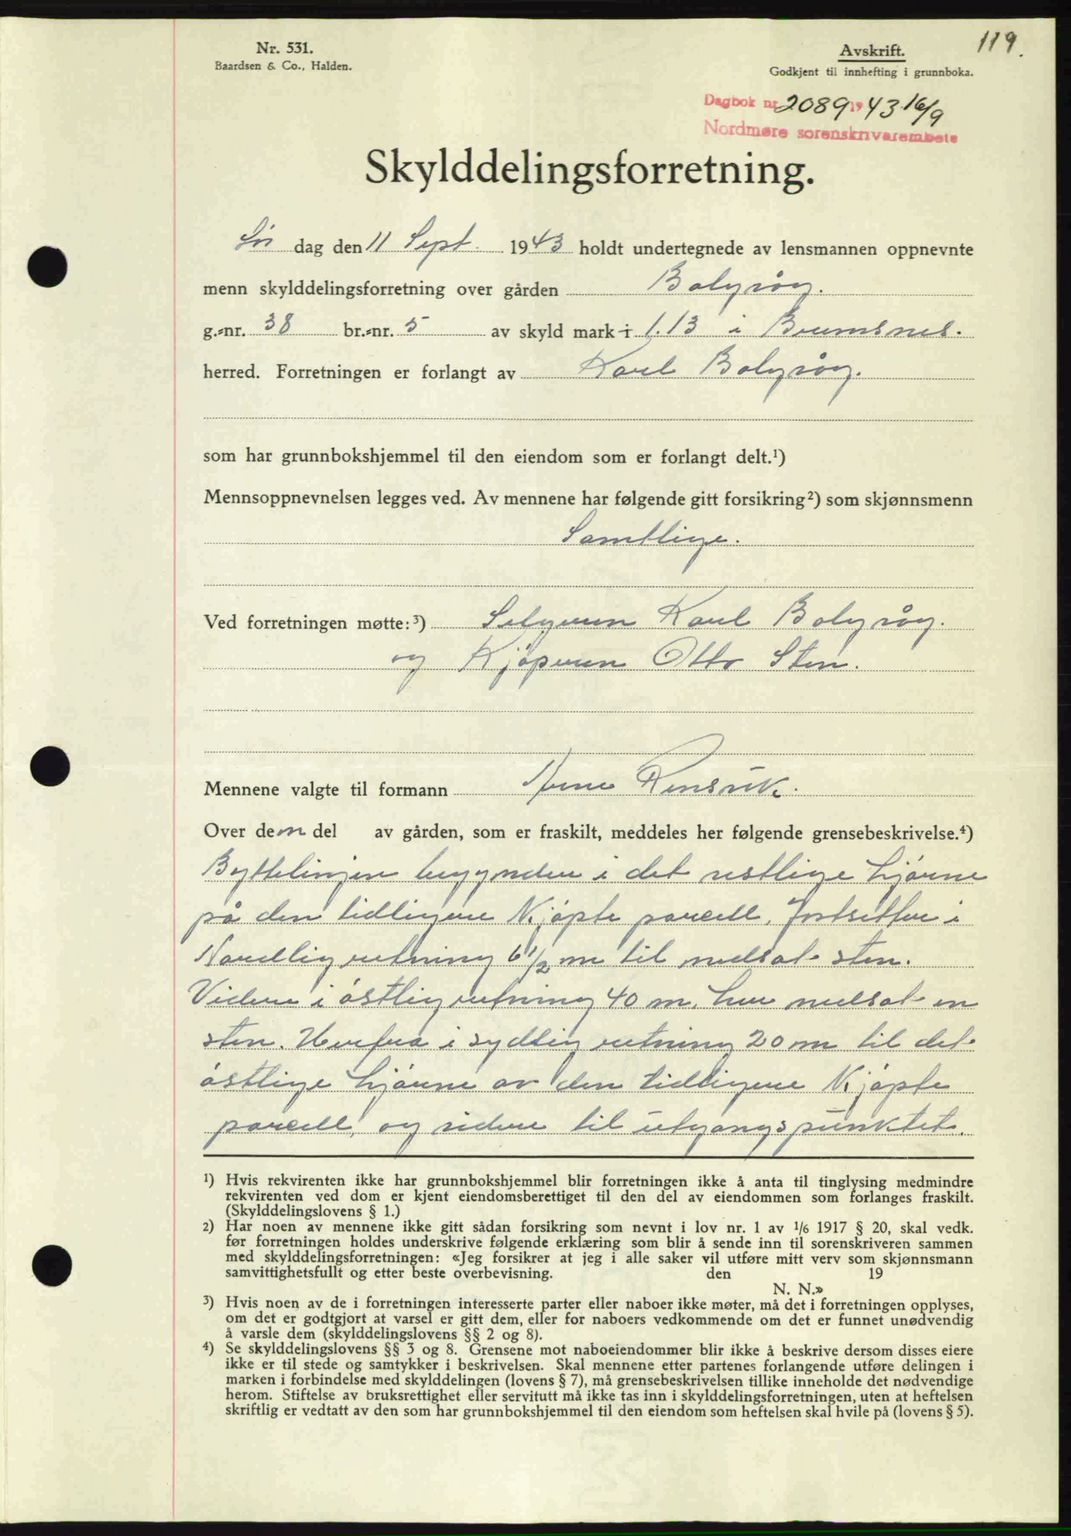 Nr. 531.
Baardsen & Co., Halden.
Avskrift.
Godkjent til innhefting i grunnboka.
119.
Dagbok nr. 2089 1943 16/9
Nordmøre sorenskriverembete
Skylddelingsforretning.
Lør dag den 11 Sept. 1943 holdt undertegnede av lensmannen oppnevnte
menn skylddelingsforretning over gården Bolgvåg.
g.-nr. 38 br.-nr. 5 av skyld mark i 1.13 i Bremsnes.
herred. Forretningen er forlangt av Karl Bolgvåg.
som har grunnbokshjemmel til den eiendom som er forlangt delt.¹)
Mennsoppnevnelsen legges ved. Av mennene har følgende gitt forsikring²) som skjønnsmenn
Samtlige.
Ved forretningen møtte:³) Selgeren Karl Bolgvåg.
og Kjøperen Otto Sten.
Mennene valgte til formann Arne Rensvik.
Over den del av gården, som er fraskilt, meddeles her følgende grensebeskrivelse.⁴)
Byttelinjen begynder i det vestlige hjørne
på den tidligere Kjøpte parcell, fortsetter i
Nordlig retning 6 1/2 m til nedsat sten.
Videre i østlig retning 40 m, her nedsat en
sten. Herfra i sydlig retning 20 m til det
østlige hjørne av den tidligere Kjøpte
parcell, og videre til utgangspunktet.
¹) Hvis rekvirenten ikke har grunnbokshjemmel blir forretningen ikke å anta til tinglysing medmindre
rekvirenten ved dom er kjent eiendomsberettiget til den del av eiendommen som forlanges fraskilt.
(Skylddelingslovens § 1.)
²) Har noen av mennene ikke gitt sådan forsikring som nevnt i lov nr. 1 av 1/6 1917 § 20, skal vedk.
før forretningen holdes underskrive følgende erklæring som blir å sende inn til sorenskriveren sammen
med skylddelingsforretningen: «Jeg forsikrer at jeg i alle saker vil utføre mitt verv som skjønnsmann
samvittighetsfullt og etter beste overbevisning. den 19
N. N.»
³) Hvis noen av de i forretningen interesserte parter eller naboer ikke møter, må det i forretningen opplyses,
om det er godtgjort at varsel er gitt dem, eller for naboers vedkommende om det er funnet unødvendig
å varsle dem (skylddelingslovens §§ 2 og 8).
⁴) Se skylddelingslovens §§ 3 og 8. Grensene mot naboeiendommer blir ikke å beskrive dersom disses eiere
ikke er til stede og samtykker i beskrivelsen. Skal mennene etter partenes forlangende utføre delingen i
marken i forbindelse med skylddelingen (lovens § 7), må grensebeskrivelsen tillike inneholde det nødvendige
herom. Stiftelse av bruksrettighet eller servitutt må ikke tas inn i skylddelingsforretningen, uten at heftelsen
skriftlig er vedtatt av den som har grunnbokshjemmel til den eiendom som heftelsen skal hvile på (lovens § 5).